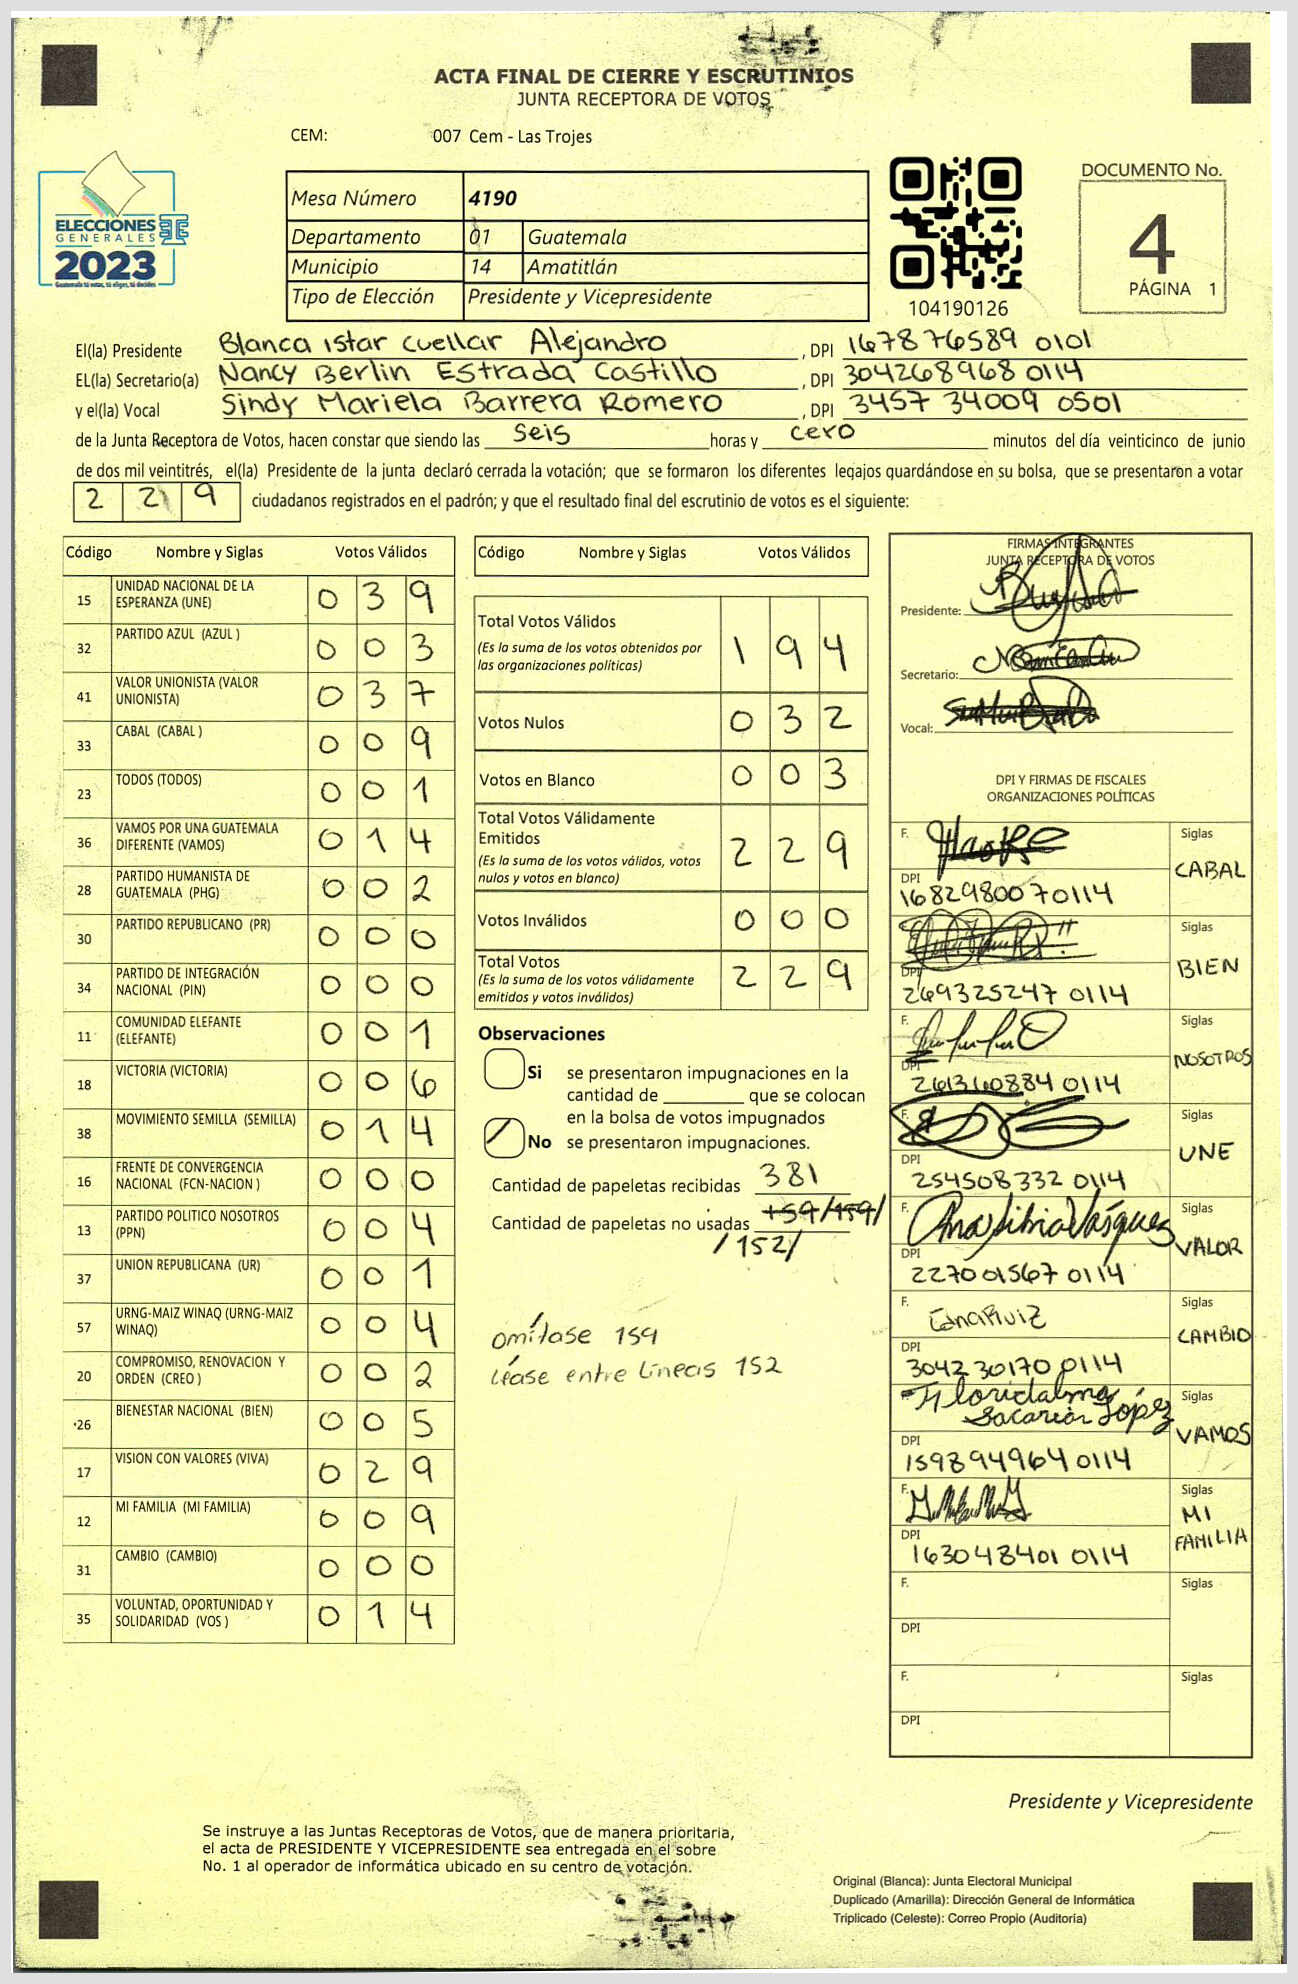 ACTA FINAL DE CIERRE Y ESCRUTINIOS
JUNTA RECEPTORA DE VOTOS
CEM: 007 Cem - Las Trojes
ELECCIONES
GENERALES
2023
Guatemala tú votas, tú eliges, tú decides
Mesa Número 4190
Departamento 01 Guatemala
Municipio 14 Amatitlán
Tipo de Elección Presidente y Vicepresidente
104190126
DOCUMENTO No.
4
PÁGINA 1
El(la) Presidente Blanca istar cuellar Alejandro , DPI 1678 76589 0101
EL(la) Secretario(a) Nancy Berlin Estrada Castillo , DPI 304268968 0114
y el(la) Vocal Sindy Mariela Barrera Romero , DPI 3457 34009 0501
de la Junta Receptora de Votos, hacen constar que siendo las seis horas y cero minutos del día veinticinco de junio
de dos mil veintitrés, el(la) Presidente de la junta declaró cerrada la votación; que se formaron los diferentes legajos guardándose en su bolsa, que se presentaron a votar
2 2 9 ciudadanos registrados en el padrón; y que el resultado final del escrutinio de votos es el siguiente:
Código Nombre y Siglas Votos Válidos
15 UNIDAD NACIONAL DE LA ESPERANZA (UNE) 0 3 9
32 PARTIDO AZUL (AZUL ) 0 0 3
41 VALOR UNIONISTA (VALOR UNIONISTA) 0 3 7
33 CABAL (CABAL ) 0 0 9
23 TODOS (TODOS) 0 0 1
36 VAMOS POR UNA GUATEMALA DIFERENTE (VAMOS) 0 1 4
28 PARTIDO HUMANISTA DE GUATEMALA (PHG) 0 0 2
30 PARTIDO REPUBLICANO (PR) 0 0 0
34 PARTIDO DE INTEGRACIÓN NACIONAL (PIN) 0 0 0
11 COMUNIDAD ELEFANTE (ELEFANTE) 0 0 1
18 VICTORIA (VICTORIA) 0 0 6
38 MOVIMIENTO SEMILLA (SEMILLA) 0 1 4
16 FRENTE DE CONVERGENCIA NACIONAL (FCN-NACION ) 0 0 0
13 PARTIDO POLITICO NOSOTROS (PPN) 0 0 4
37 UNION REPUBLICANA (UR) 0 0 1
57 URNG-MAIZ WINAQ (URNG-MAIZ WINAQ) 0 0 4
20 COMPROMISO, RENOVACION Y ORDEN (CREO ) 0 0 2
26 BIENESTAR NACIONAL (BIEN) 0 0 5
17 VISION CON VALORES (VIVA) 0 2 9
12 MI FAMILIA (MI FAMILIA) 0 0 9
31 CAMBIO (CAMBIO) 0 0 0
35 VOLUNTAD, OPORTUNIDAD Y SOLIDARIDAD (VOS ) 0 1 4
Código Nombre y Siglas Votos Válidos
Total Votos Válidos
(Es la suma de los votos obtenidos por
las organizaciones políticas) 1 9 4
Votos Nulos 0 3 2
Votos en Blanco 0 0 3
Total Votos Válidamente
Emitidos
(Es la suma de los votos válidos, votos
nulos y votos en blanco) 2 2 9
Votos Inválidos 0 0 0
Total Votos
(Es la suma de los votos válidamente
emitidos y votos inválidos) 2 2 9
Observaciones
Si se presentaron impugnaciones en la
cantidad de ________ que se colocan
en la bolsa de votos impugnados
No se presentaron impugnaciones.
Cantidad de papeletas recibidas 381
Cantidad de papeletas no usadas /159/
/152/
omítase 159
léase entre líneas 152
FIRMAS INTEGRANTES
JUNTA RECEPTORA DE VOTOS
Presidente:
Secretario:
Vocal:
DPI Y FIRMAS DE FISCALES
ORGANIZACIONES POLÍTICAS
F. Siglas
CABAL
DPI
1682980070114
Siglas
BIEN
DPI
269325247 0114
F. Siglas
NOSOTROS
DPI
261360884 0114
F. Siglas
UNE
DPI
254508332 0114
F. Ana Silvia Vásquez Siglas
VALOR
DPI
227001567 0114
F. Edna Ruiz Siglas
CAMBIO
DPI
304230170 0114
Floridalma López Siglas
VAMOS
DPI
159894964 0114
F. Siglas
MI
FAMILIA
DPI
163048401 0114
F. Siglas
DPI
F. Siglas
DPI
Presidente y Vicepresidente
Se instruye a las Juntas Receptoras de Votos, que de manera prioritaria,
el acta de PRESIDENTE Y VICEPRESIDENTE sea entregada en el sobre
No. 1 al operador de informática ubicado en su centro de votación.
Original (Blanca): Junta Electoral Municipal
Duplicado (Amarilla): Dirección General de Informática
Triplicado (Celeste): Correo Propio (Auditoría)